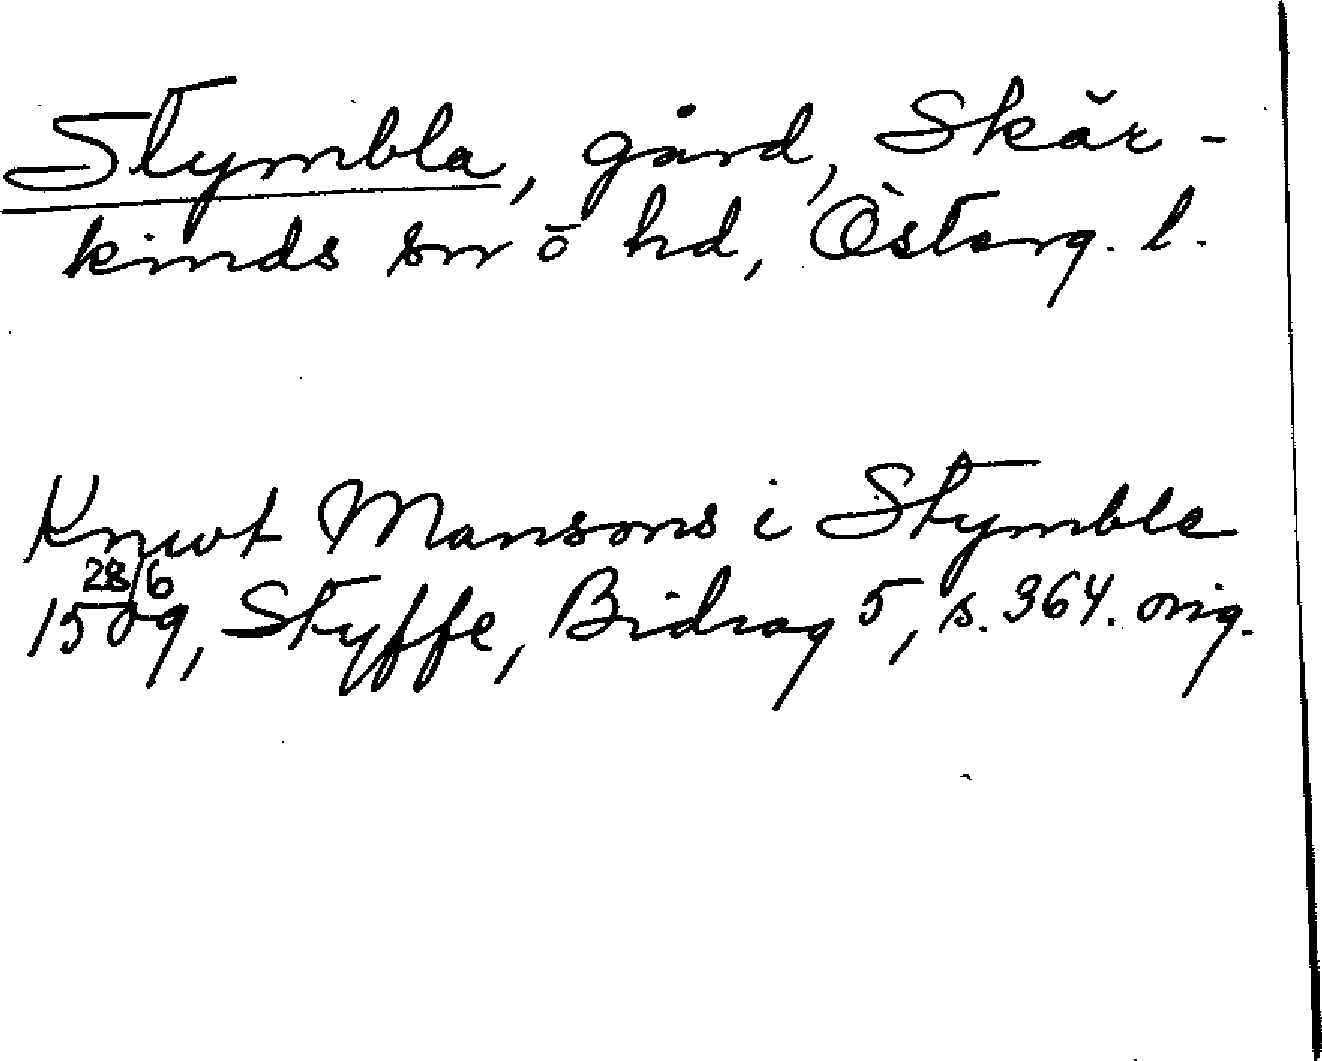 Stymbla, gård, Skär-
kinds sn o hd, Österg. l.
Knwt Mansons i Stymble
28/6
1509, Styffe, Bidrag 5, s. 364. orig.